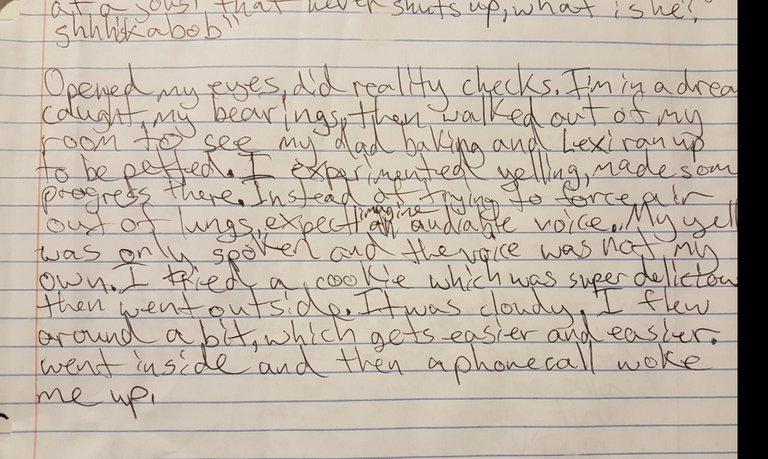 that never shuts up, what is she?
shhhkabob"
Opened my eyes, did reality checks. I'm in a drea
caught my bearings, then walked out of my
room to see my dad baking and Lexi ran up
to be petted. I experimented yelling, made som
progress there. Instead of trying to force air
out of lungs, expect/imagine an audiable voice. My yell
was only spoken and the voice was not my
own. I tried a cookie which was super deliciou
then went outside. It was cloudy, I flew
around a bit, which gets easier and easier.
went inside and then a phone call woke
me up.